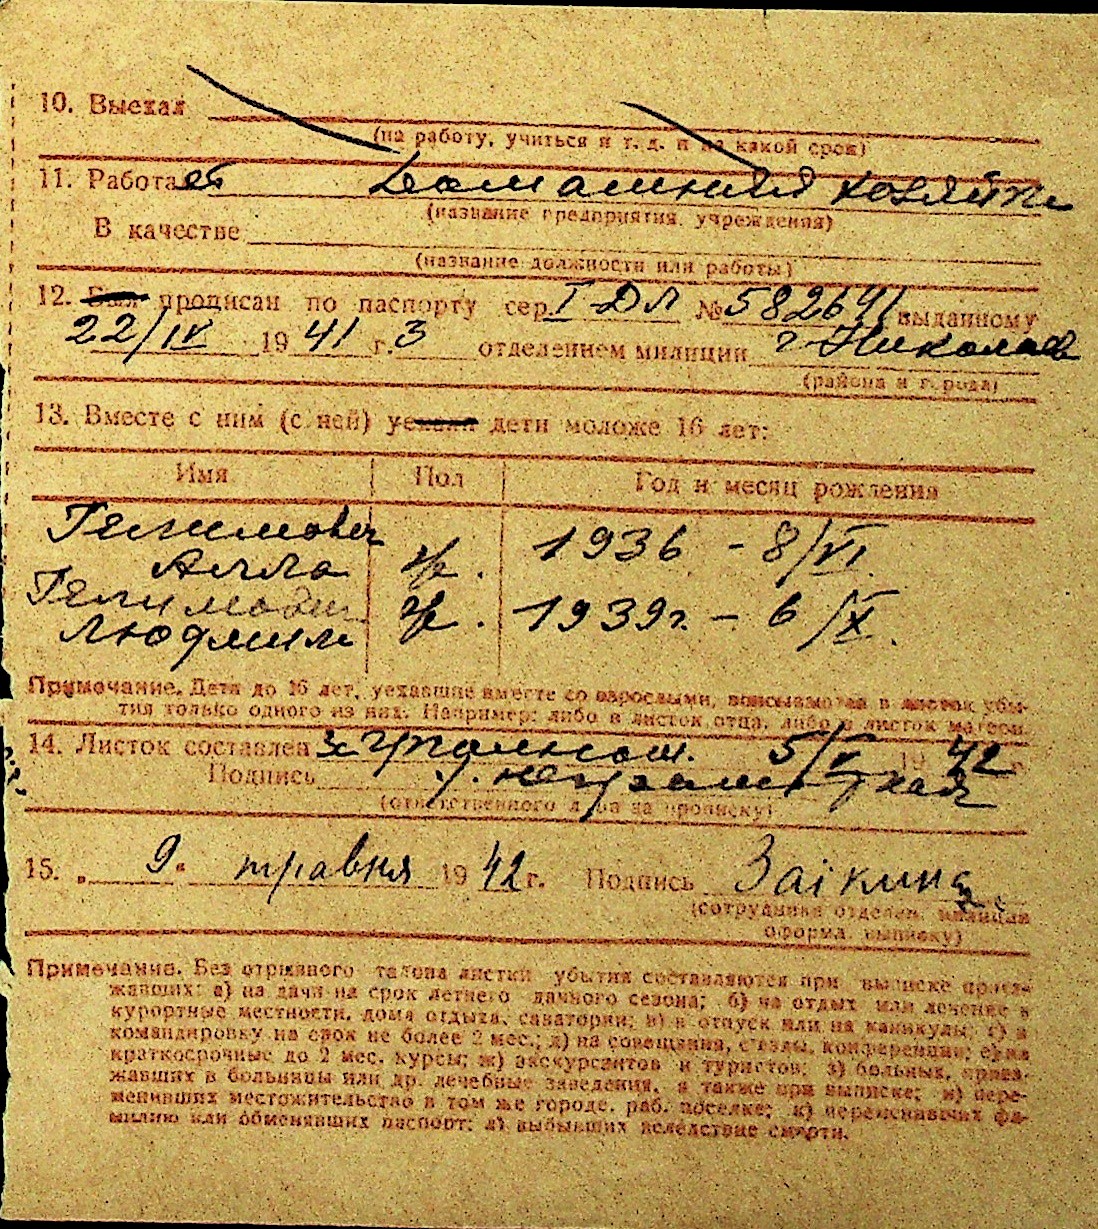 10. Выехал
(на работу, учиться и т. д. и на какой срок)
11. Работает Домашняя хозяйка
(название предприятия, учреждения)
В качестве
(название должности или работы)
12. Был прописан по паспорту сер. I ДЛ № 582641 выданному
22/IV 1941 г. 3 отделением милиции г. Николаев
(района и города)
13. Вместе с ним (с ней) уехали дети моложе 16 лет:
Имя Пол Год и месяц рождения
Алла ж. 1936 - 8/VI
Людмила ж. 1939 г. - 6/X.
Примечание. Дети до 16 лет, уехавшие вместе со взрослыми, вписываются в листок убы-
тия только одного из них. Например: либо в листок отца, либо в листок матери.
14. Листок составлен 5/V 1942 г.
Подпись
(ответственного лица за прописку)
15. „ 9 “ травня 1942 г. Подпись Заікина
(сотрудника отделен. милиции
оформ. выписку)
Примечание. Без отрывного талона листки убытия составляются при выписке приез-
жавших: а) на дачи на срок летнего дачного сезона; б) на отдых или лечение в
курортные местности, дома отдыха, санатории; в) в отпуск или на каникулы; г) в
командировку на срок не более 2 мес.; д) на совещания, съезды, конференции; е) на
краткосрочные до 2 мес. курсы; ж) экскурсантов и туристов; з) больных, приез-
жавших в больницы или др. лечебные заведения, а также при выписке; и) пере-
менивших местожительство в том же городе, раб. поселке; к) переменивших фа-
милию или обменявших паспорт; л) выбывших вследствие смерти.